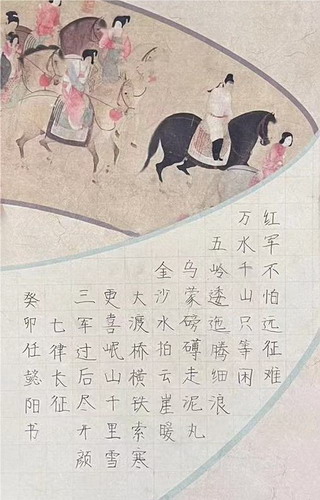 红军不怕远征难
万水千山只等闲
五岭逶迤腾细浪
乌蒙磅礴走泥丸
金沙水拍云崖暖
大渡桥横铁索寒
更喜岷山千里雪
三军过后尽开颜
七律长征
癸卯任懿阳书